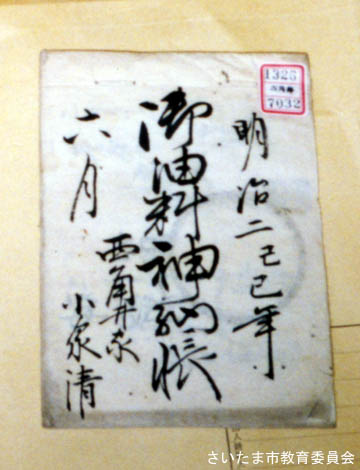 明治二己巳年
御油料神納帳
六月
西角井家
小泉清
1326
西角井
7032
さいたま市教育委員会